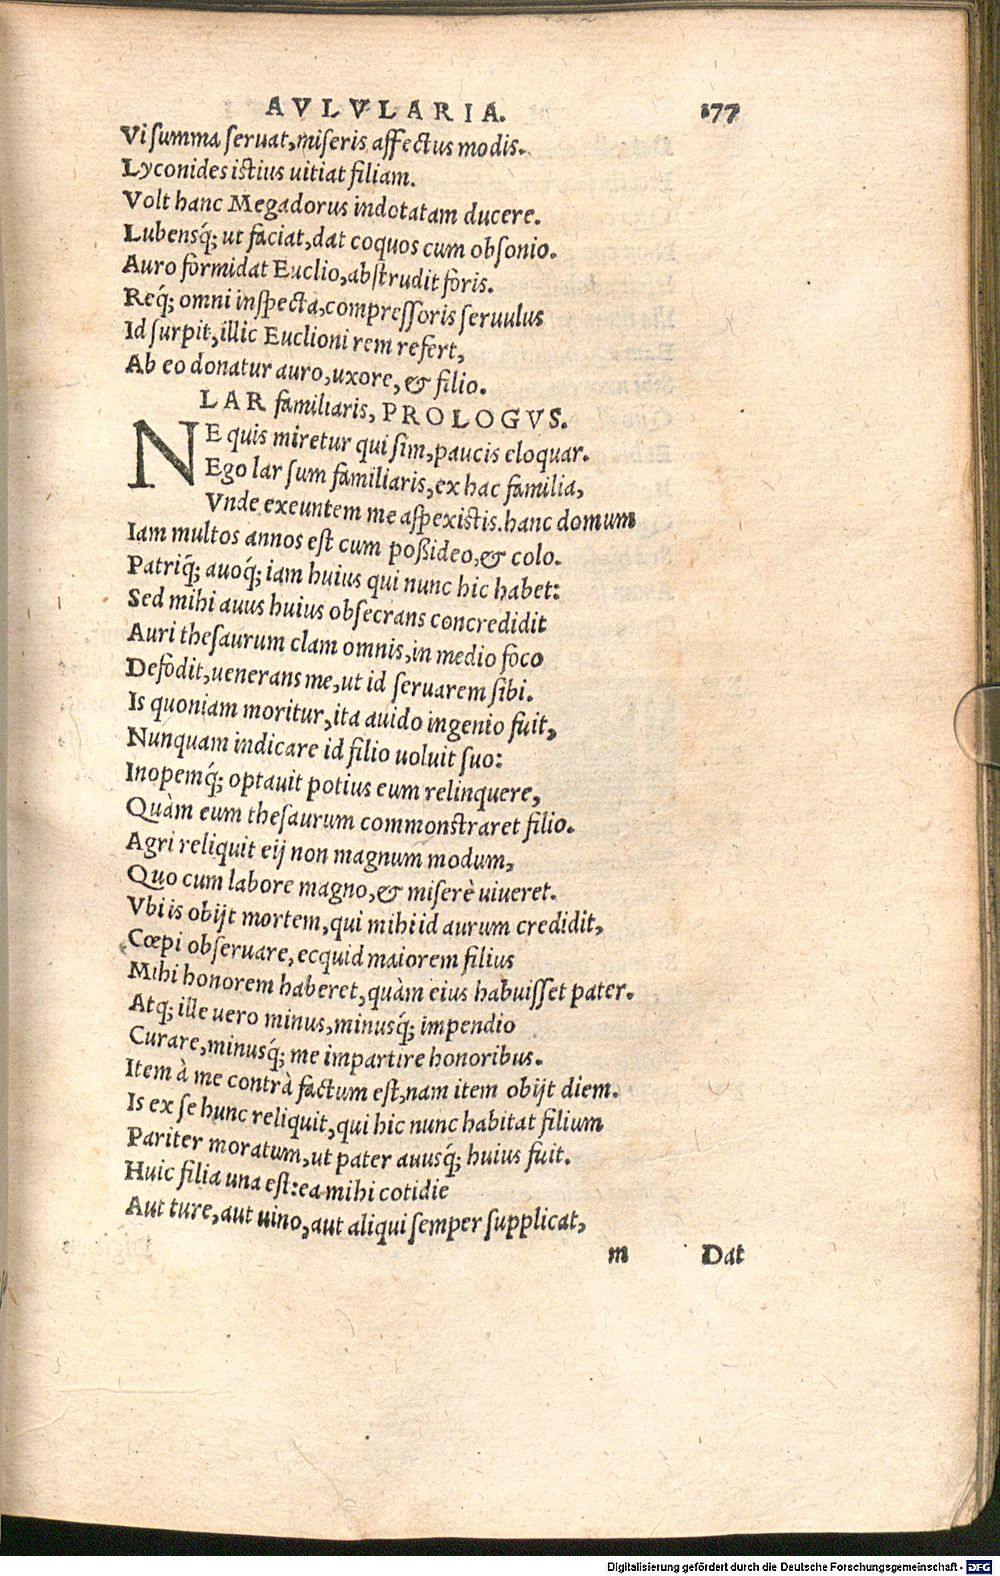 AVLVLARIA. 177
Vi summa seruat, miseris affectus modis.
Lyconides istius uitiat filiam.
Volt hanc Megadorus indotatam ducere.
Lubensq́; ut faciat, dat coquos cum obsonio.
Auro formidat Euclio, abstrudit foris.
Req́; omni inspecta, compressoris seruulus
Id surpit, illic Euclioni rem refert,
Ab eo donatur auro, uxore, & filio.
LAR familiaris, PROLOGVS.
NE quis miretur qui sim, paucis eloquar.
Ego lar sum familiaris, ex hac familia,
Vnde exeuntem me aspexistis. hanc domum
Iam multos annos est cum poßideo, & colo.
Patriq́; auoq́; iam huius qui nunc hic habet:
Sed mihi auus huius obsecrans concredidit
Auri thesaurum clam omnis, in medio foco
Defodit, uenerans me, ut id seruarem sibi.
Is quoniam moritur, ita auido ingenio fuit,
Nunquam indicare id filio uoluit suo:
Inopemq́; optauit potius eum relinquere,
Quàm eum thesaurum commonstraret filio.
Agri reliquit eij non magnum modum,
Quo cum labore magno, & miserè uiueret.
Vbi is obijt mortem, qui mihi id aurum credidit,
Cœpi obseruare, ecquid maiorem filius
Mihi honorem haberet, quàm eius habuisset pater.
Atq; ille uero minus, minusq́; impendio
Curare, minusq́; me impartire honoribus.
Item à me contrà factum est, nam item obijt diem.
Is ex se hunc reliquit, qui hic nunc habitat filium
Pariter moratum, ut pater auusq́; huius fuit.
Huic filia una est: ea mihi cotidie
Aut ture, aut uino, aut aliqui semper supplicat,
m Dat
Digitalisierung gefördert durch die Deutsche Forschungsgemeinschaft - DFG